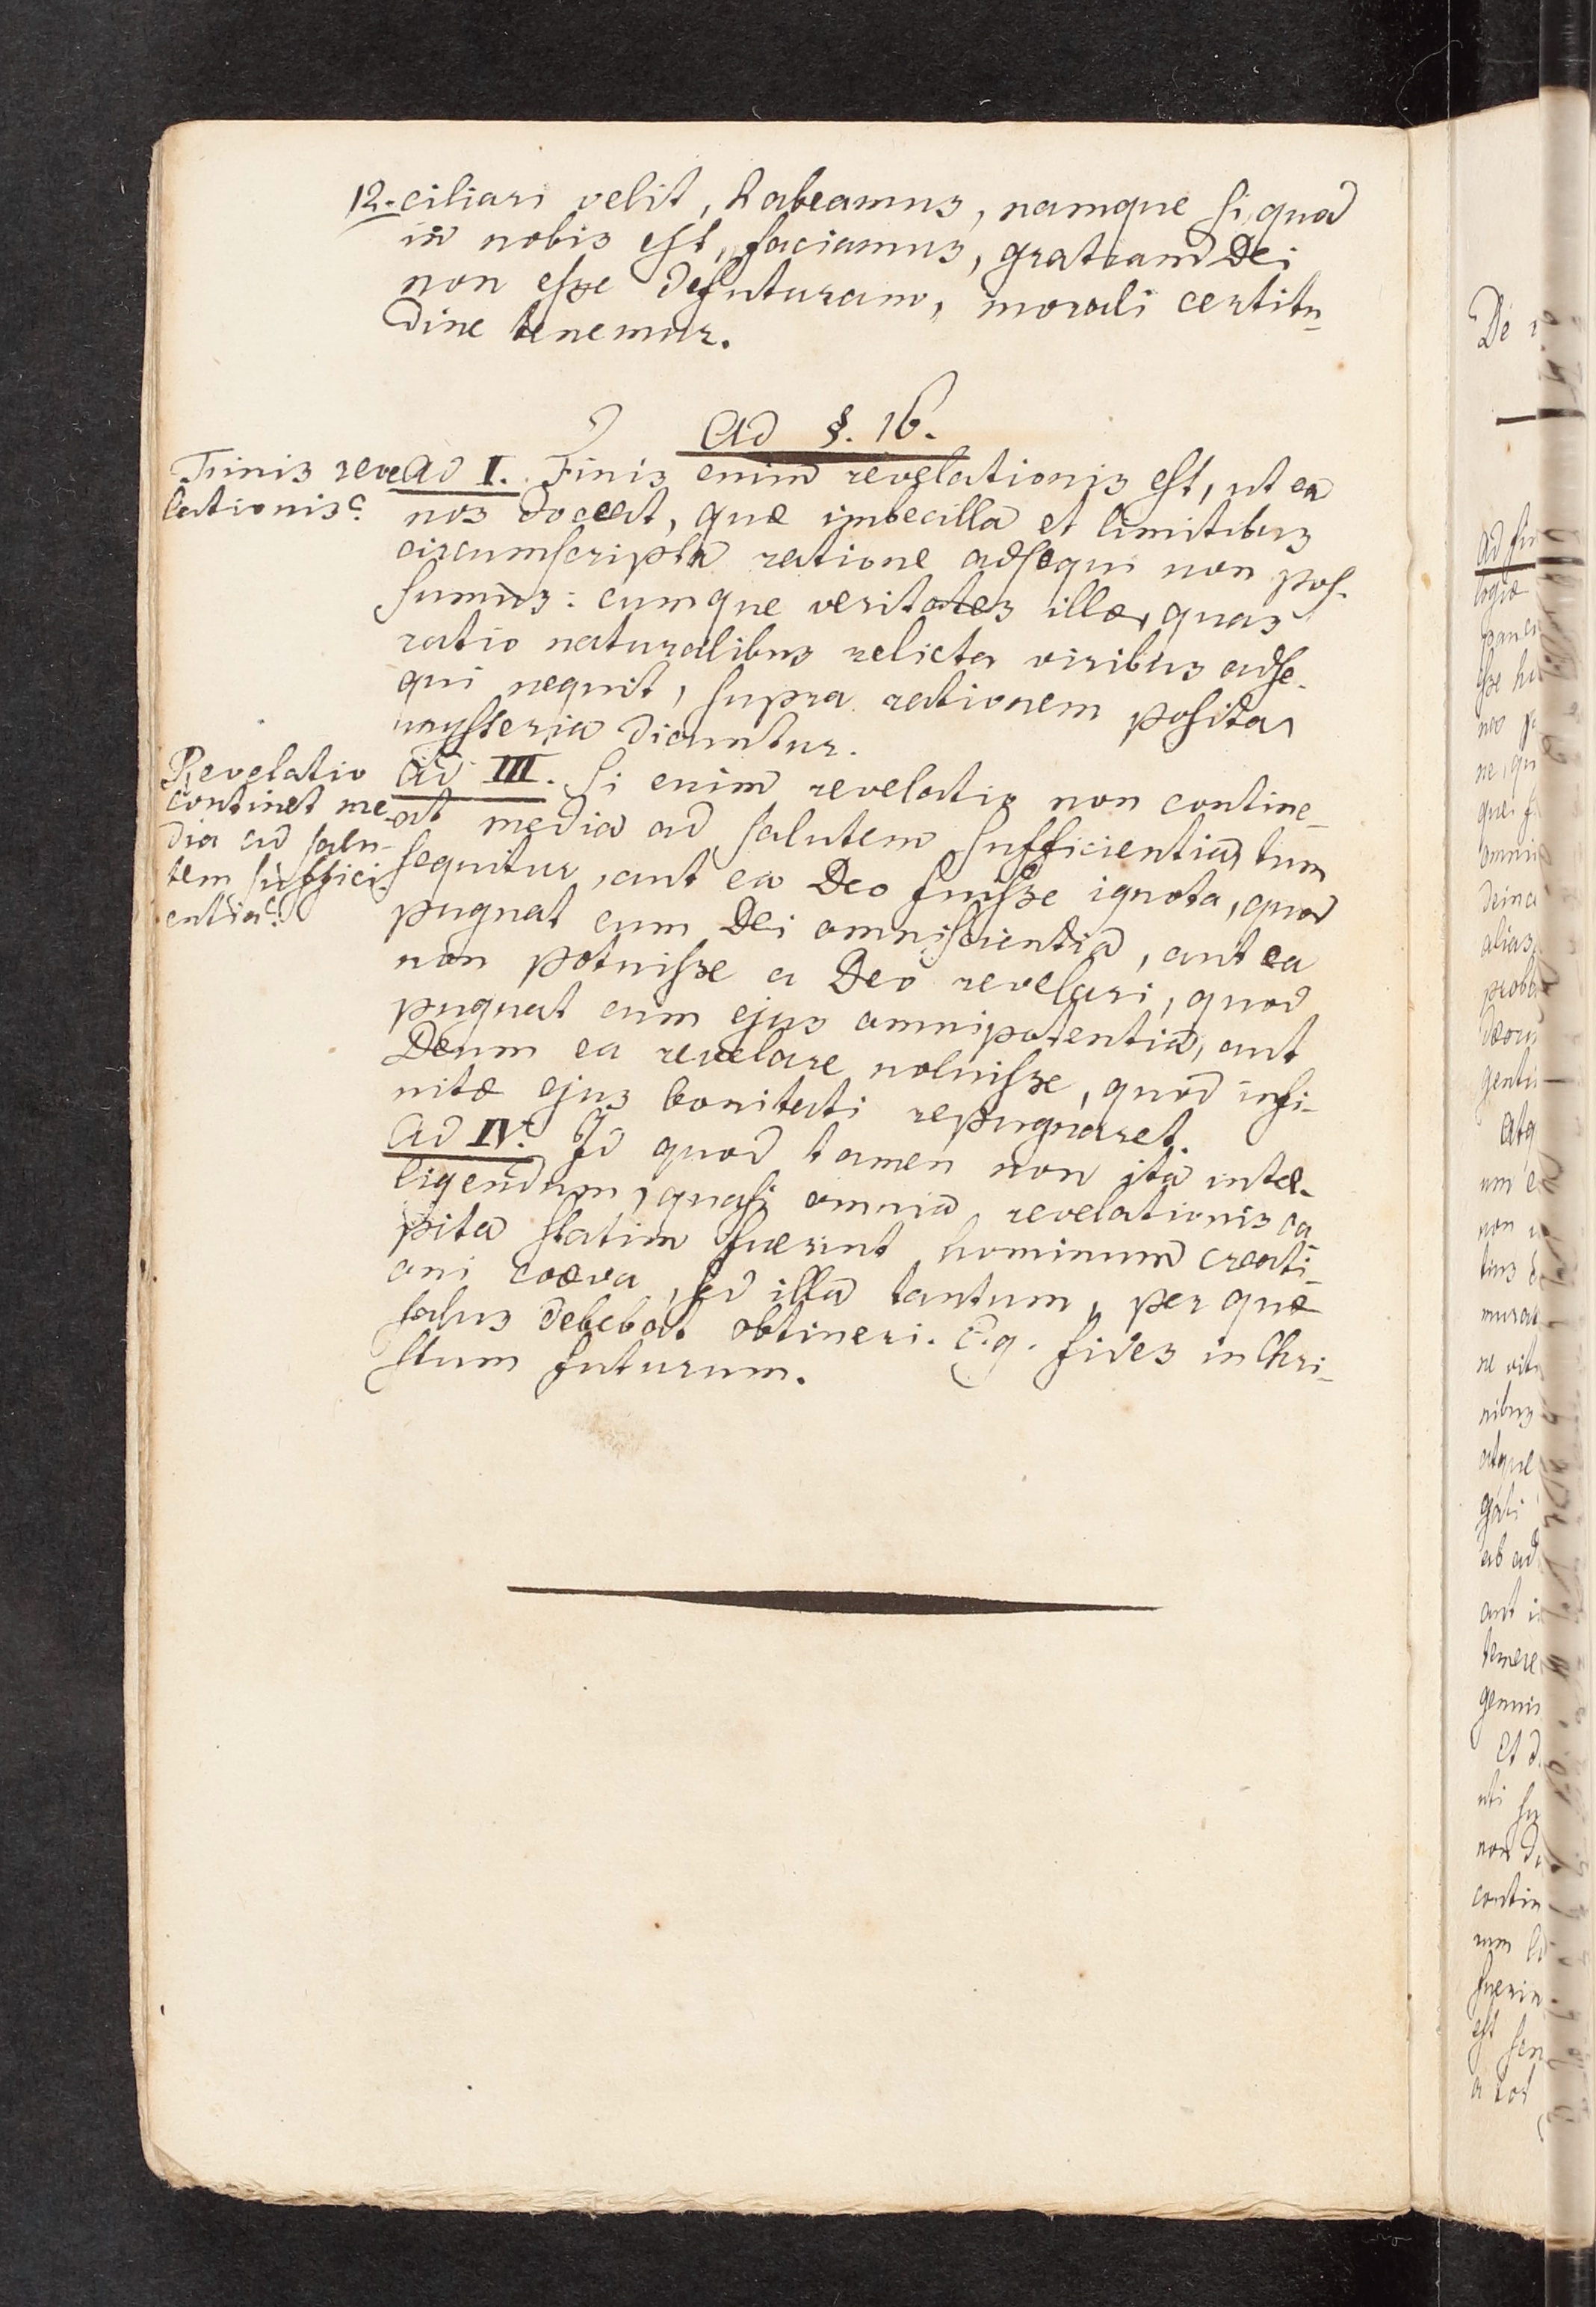 12. ciliari velit, habeamus, namque si quod
in nobis est, faciamus, gratiam Dei
non esse defuturam, morali certitu-
dine tenemur.
Ad §. 16.
Finis reve
lationis.
Ad I. Finis enim revelationis est, ut ea
nos doceat, quæ imbecilla et limitibus
circumscripta ratione adsequi non pos-
sumus: cumque veritates illæ, quas
ratio naturalibus relicta viribus adse-
qui nequit, supra rationem posita,
mysteria dicuntur.
Revelatio
continet me-
dia ad salu-
tem suffici-
entia.
Ad III. Si enim revelatio non contine-
at media ad salutem sufficientia, tum
sequitur, aut ea Deo fuisse ignota, quod
pugnat cum Dei omniscientia, aut ea
non potuisse a Deo revelari, quod
pugnat cum ejus omnipotentia, aut
Deum ea revelare noluisse, quod infi-
nitæ ejus bonitati repugnaret.
Ad IV. Id quod tamen non ita intel-
ligendum, quasi omnia revelationis ca-
pita statim fuerint hominum creati-
oni coæva, sed illa tantum, per quæ
salus debebat obtineri. E.g. fides in Chri-
stum futurum.